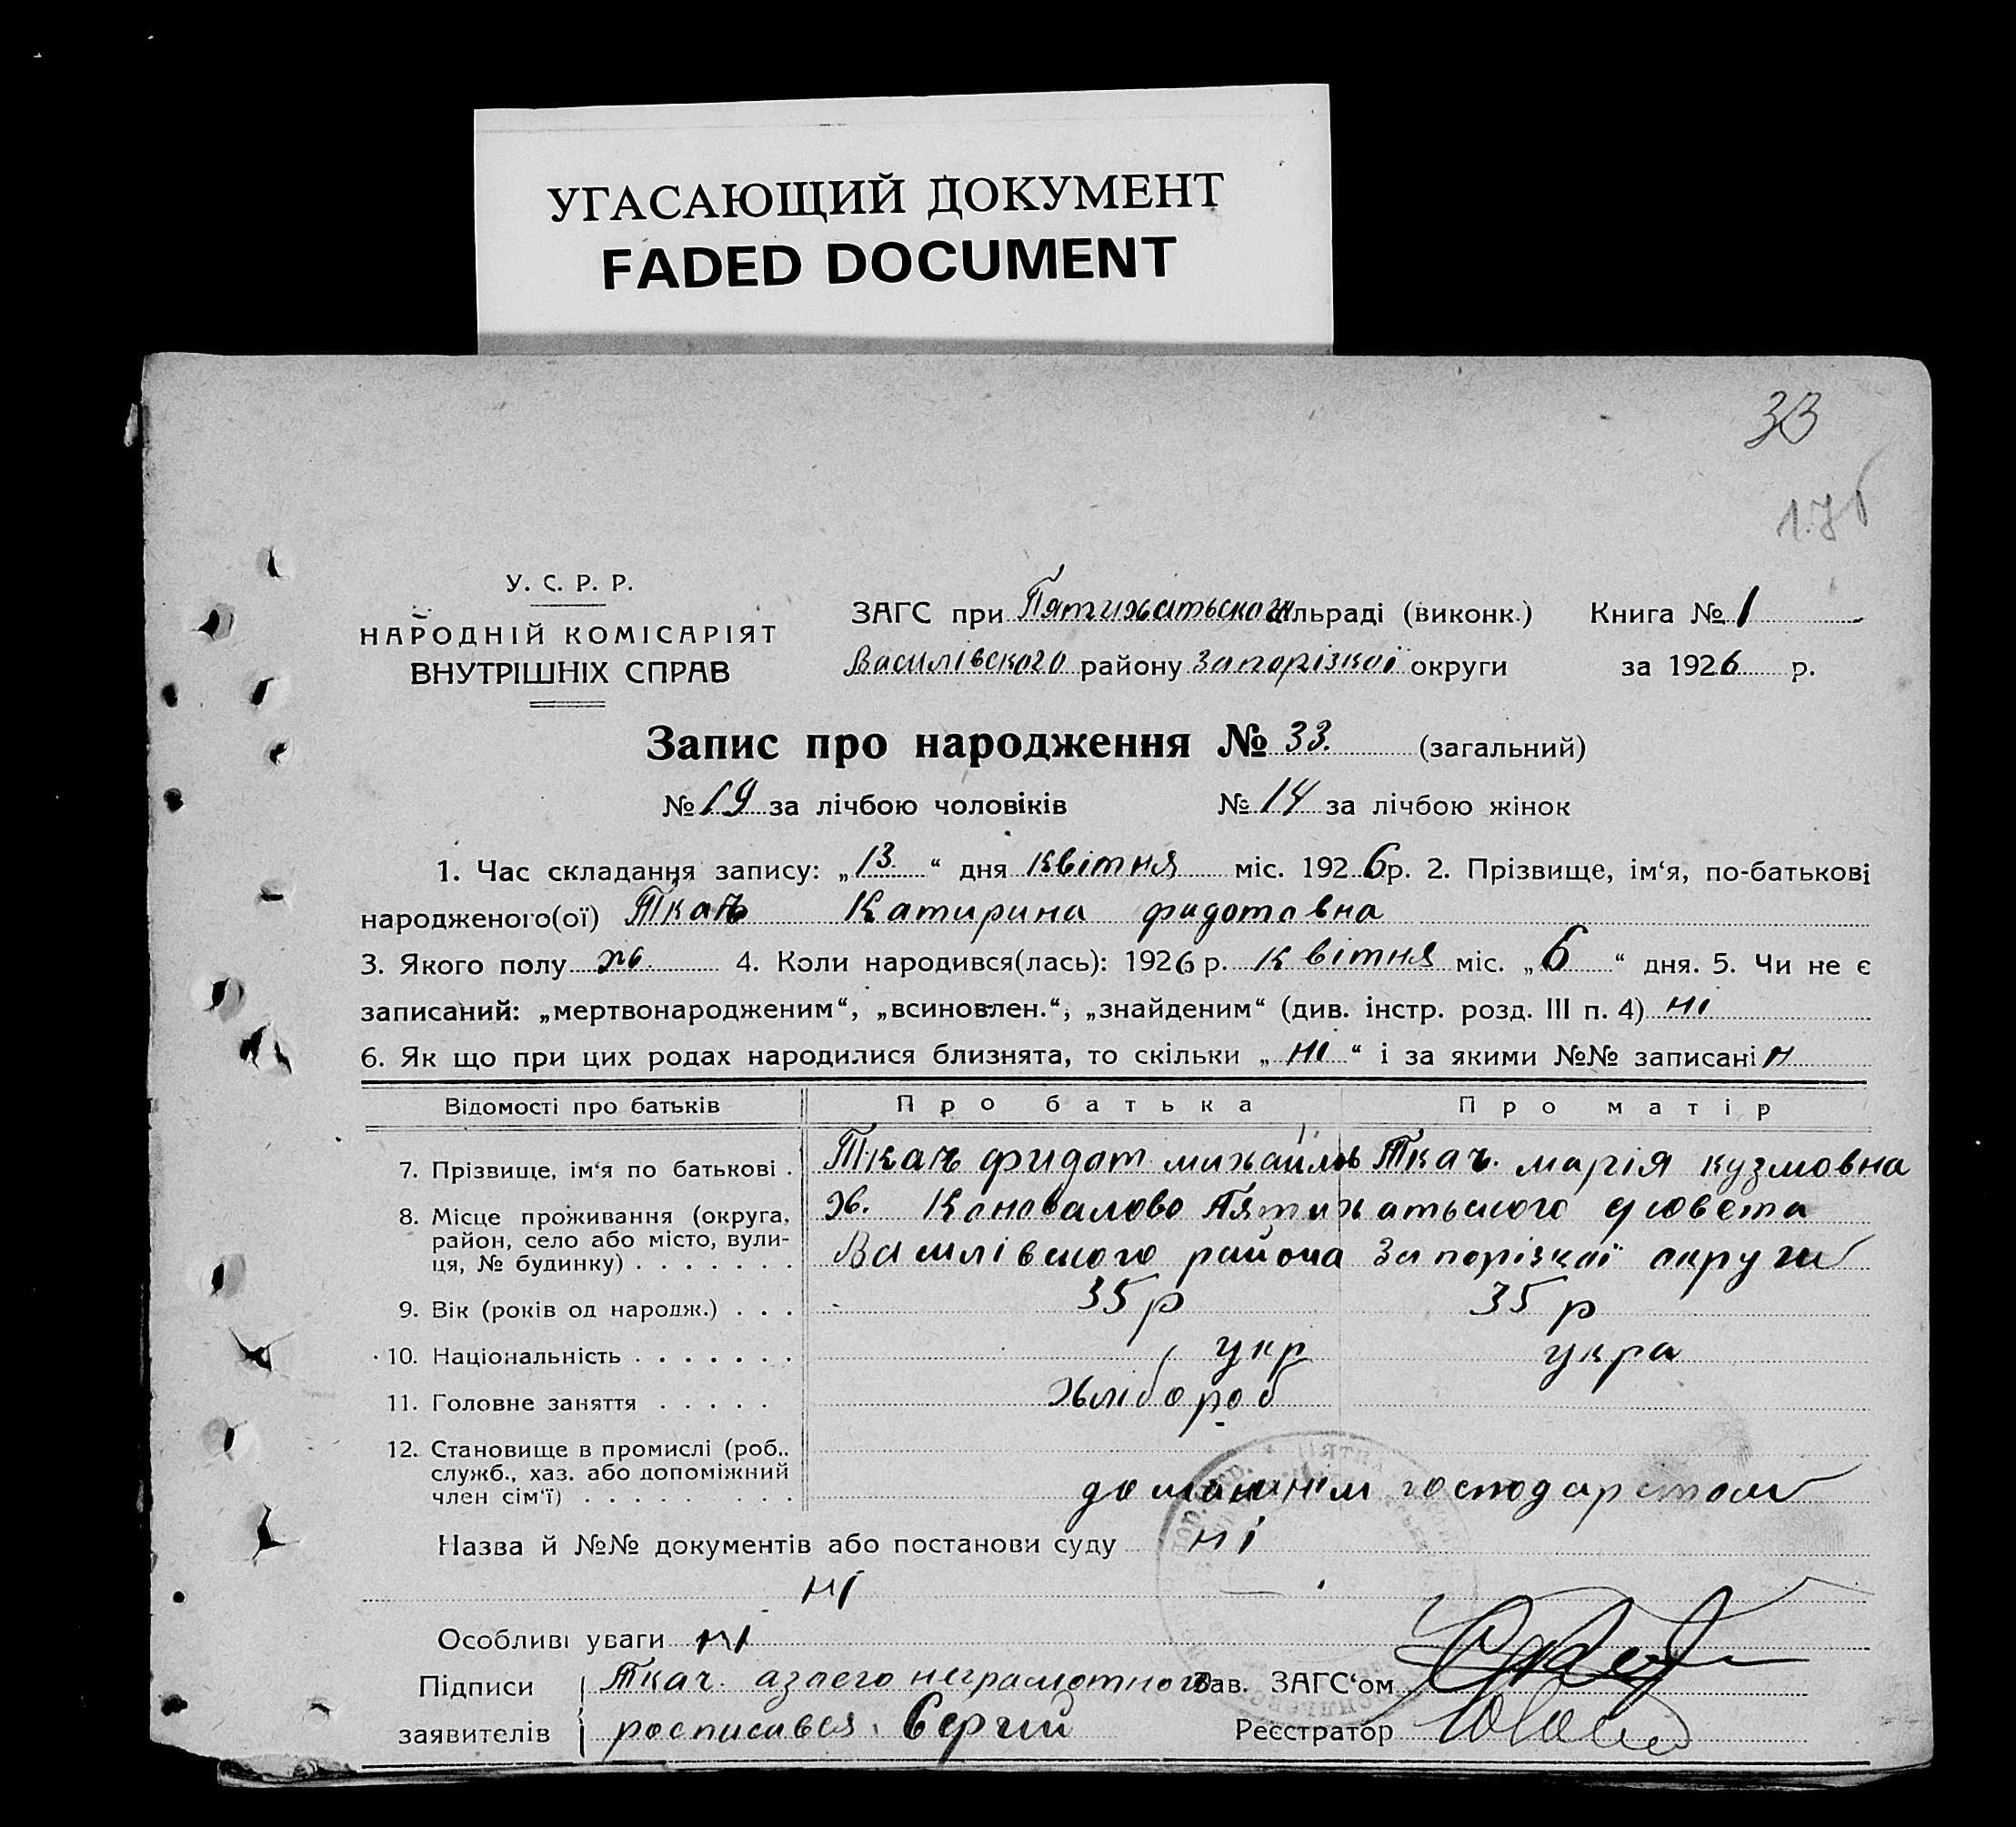 УГАСАЮЩИЙ ДОКУМЕНТ
FADED DOCUMENT
33
У. С. Р. Р.
НАРОДНІЙ КОМІСАРІЯТ
ВНУТРІШНІХ СПРАВ
ЗАГС при Пятихатьской сільраді (виконк.) Книга № 1
Василівского району Запорізкої округи за 1926 р.
Запис про народження № 33. (загальний)
№ 19 за лічбою чоловіків № 14 за лічбою жінок
1. Час складання запису: „13“ дня квітня міс. 1926 р. 2. Прізвище, ім‘я, по-батькові
народженого(ої) Ткач Катирина фидотовна
3. Якого полу ж. 4. Коли народився(лась): 1926 р. квітня міс. „6“ дня. 5. Чи не є
записаний: „мертвонародженим“, „всиновлен.“, „знайденим“ (див. інстр. розд. III п. 4) ні
6. Як що при цих родах народилися близнята, то скільки „ні“ і за якими №№ записані н
Відомості про батьків Про батька Про матір
7. Прізвище, ім‘я по батькові . Ткач фидот михайлов Ткач. марія кузмовна
8. Місце проживання (округа, район, село або місто, вулиця, № будинку) х. Коновалово Пятихатьского
Василівского района Запорізкої округи
9. Вік (років од народж.) . . . 35 р 35 р
10. Національність укр укра
11. Головне заняття хлібороб
12. Становище в промислі (роб., служб., хаз. або допоміжний член сім‘ї)
господарством
Назва й №№ документів або постанови суду ні
ні
Особливі уваги ні
Підписи Ткач. азаего неграмотного Зав. ЗАГС‘ом
заявителів росписався Сергий Реєстратор